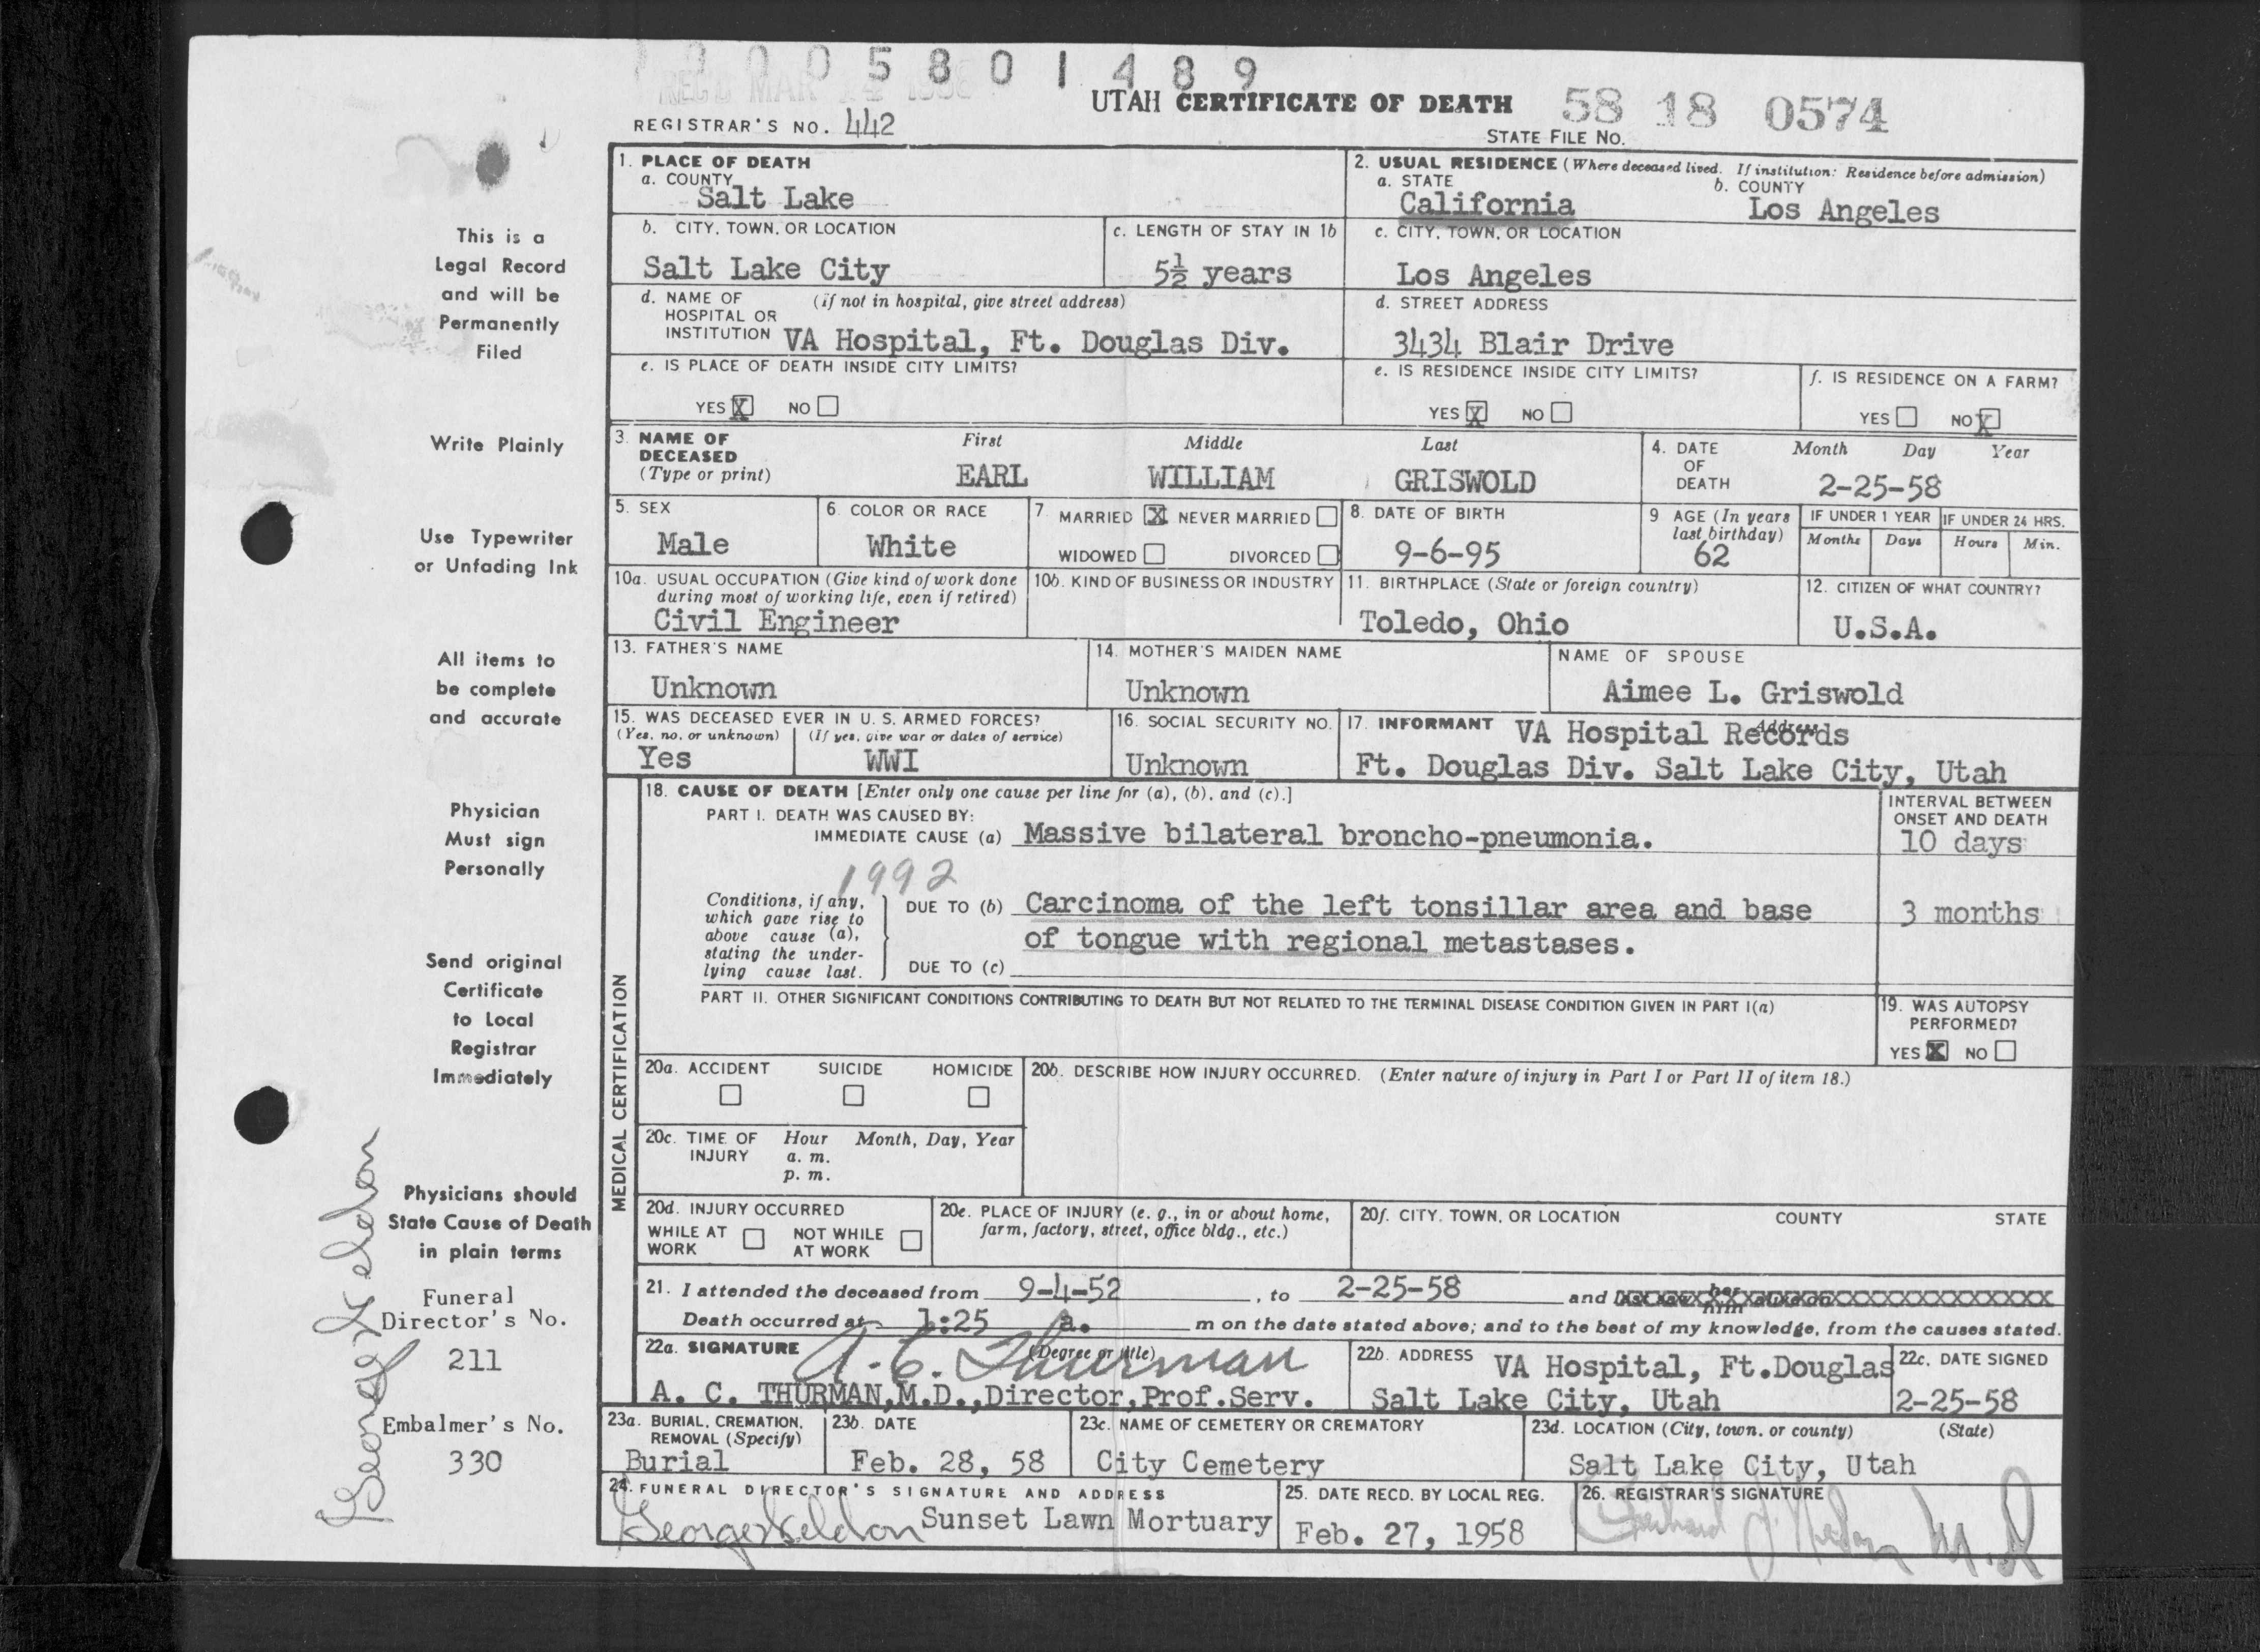 1 0 0 5 8 0 1 4 8 9
REC'D MAR
UTAH CERTIFICATE OF DEATH
58 18 0574
REGISTRAR'S NO. 442
STATE FILE NO.
1. PLACE OF DEATH
a. COUNTY
Salt Lake
2. USUAL RESIDENCE (Where deceased lived. If institution: Residence before admission)
a. STATE b. COUNTY
California Los Angeles
b. CITY, TOWN, OR LOCATION
Salt Lake City
c. LENGTH OF STAY IN 1b
5½ years
c. CITY, TOWN, OR LOCATION
Los Angeles
d. NAME OF (if not in hospital, give street address)
HOSPITAL OR
INSTITUTION VA Hospital, Ft. Douglas Div.
d. STREET ADDRESS
3434 Blair Drive
e. IS PLACE OF DEATH INSIDE CITY LIMITS?
YES X NO
e. IS RESIDENCE INSIDE CITY LIMITS?
YES X NO
f. IS RESIDENCE ON A FARM?
YES NO X
3. NAME OF
DECEASED
(Type or print)
First Middle Last
EARL WILLIAM GRISWOLD
4. DATE
OF
DEATH
Month Day Year
2-25-58
5. SEX
Male
6. COLOR OR RACE
White
7. MARRIED X NEVER MARRIED
WIDOWED DIVORCED
8. DATE OF BIRTH
9-6-95
9 AGE (In years
last birthday)
62
IF UNDER 1 YEAR
Months Days
IF UNDER 24 HRS.
Hours Min.
10a. USUAL OCCUPATION (Give kind of work done
during most of working life, even if retired)
Civil Engineer
10b. KIND OF BUSINESS OR INDUSTRY
11. BIRTHPLACE (State or foreign country)
Toledo, Ohio
12. CITIZEN OF WHAT COUNTRY?
U.S.A.
13. FATHER'S NAME
Unknown
14. MOTHER'S MAIDEN NAME
Unknown
NAME OF SPOUSE
Aimee L. Griswold
15. WAS DECEASED EVER IN U. S. ARMED FORCES?
(Yes, no, or unknown) (If yes, give war or dates of service)
Yes WWI
16. SOCIAL SECURITY NO.
Unknown
17. INFORMANT Address
VA Hospital Records
Ft. Douglas Div. Salt Lake City, Utah
MEDICAL CERTIFICATION
18. CAUSE OF DEATH [Enter only one cause per line for (a), (b), and (c).]
PART I. DEATH WAS CAUSED BY:
IMMEDIATE CAUSE (a) Massive bilateral broncho-pneumonia.
INTERVAL BETWEEN
ONSET AND DEATH
10 days
1992
Conditions, if any,
which gave rise to
above cause (a),
stating the under-
lying cause last.
DUE TO (b) Carcinoma of the left tonsillar area and base
of tongue with regional metastases.
3 months
DUE TO (c)
PART II. OTHER SIGNIFICANT CONDITIONS CONTRIBUTING TO DEATH BUT NOT RELATED TO THE TERMINAL DISEASE CONDITION GIVEN IN PART I(a)
19. WAS AUTOPSY
PERFORMED?
YES X NO
20a. ACCIDENT SUICIDE HOMICIDE
20b. DESCRIBE HOW INJURY OCCURRED. (Enter nature of injury in Part I or Part II of item 18.)
20c. TIME OF Hour Month, Day, Year
INJURY a. m.
p. m.
20d. INJURY OCCURRED
WHILE AT NOT WHILE
WORK AT WORK
20e. PLACE OF INJURY (e. g., in or about home,
farm, factory, street, office bldg., etc.)
20f. CITY, TOWN, OR LOCATION COUNTY STATE
21. I attended the deceased from 9-4-52, to 2-25-58 and
her
him
Death occurred at 1:25 a. m on the date stated above; and to the best of my knowledge, from the causes stated.
22a. SIGNATURE (Degree or title)
A. C. Thurman
A. C. THURMAN,M.D.,Director,Prof.Serv.
22b. ADDRESS VA Hospital, Ft.Douglas
Salt Lake City, Utah
22c. DATE SIGNED
2-25-58
23a. BURIAL, CREMATION,
REMOVAL (Specify)
Burial
23b. DATE
Feb. 28, 58
23c. NAME OF CEMETERY OR CREMATORY
City Cemetery
23d. LOCATION (City, town, or county) (State)
Salt Lake City, Utah
24. FUNERAL DIRECTOR'S SIGNATURE AND ADDRESS
George Weldon Sunset Lawn Mortuary
25. DATE RECD. BY LOCAL REG.
Feb. 27, 1958
26. REGISTRAR'S SIGNATURE
M.D
This is a
Legal Record
and will be
Permanently
Filed
Write Plainly
Use Typewriter
or Unfading Ink
All items to
be complete
and accurate
Physician
Must sign
Personally
Send original
Certificate
to Local
Registrar
Immediately
Physicians should
State Cause of Death
in plain terms
Funeral
Director's No.
211
Embalmer's No.
330
George Weldon